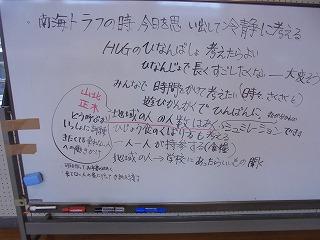 ・南海トラフの時 今日を思い出して冷静に考える
HUGのひなんばしょ 考えたらよい
ひなんじょで長くすごしたくない―大変そう
みんなで 時間をかけて考えたい(時々、さくさくと)
遊びのかんかくで ひんぱんに
地域の人の人数はあく シミュレーションできる
ひじょう食のくばり方も考える
一人一人が持参する(食糧)
地域の人→学校にあったらいいもの 聞く
山北
正木
いっしょに訓練
きたくても来れない人
への働きかけ